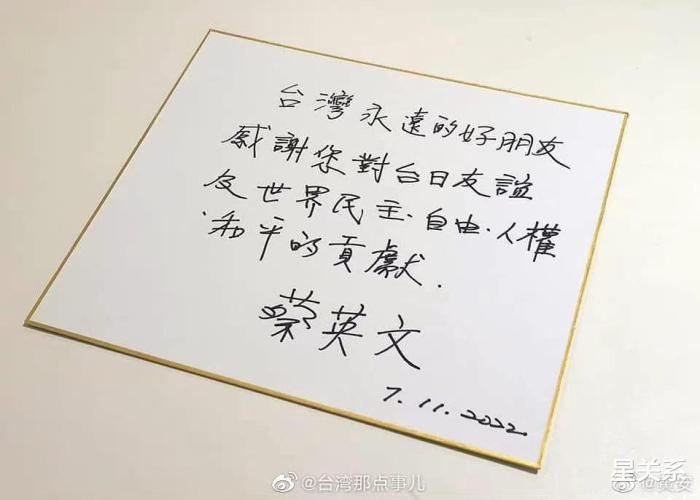 台灣永遠的好朋友
感謝您對台日友誼
及世界民主.自由.人權
和平的貢獻.
蔡英文
7.11.2022.
@台湾那点事儿
星关系